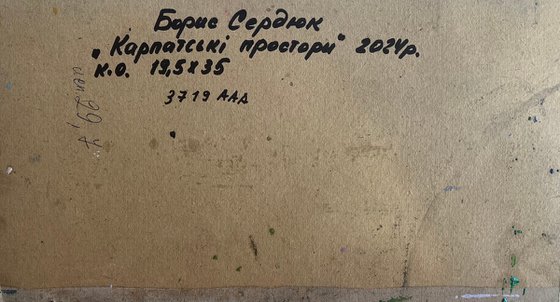 Борис Сердюк
„Карпатські простори" 2024р.
к.о. 19,5х35
3719 ААА